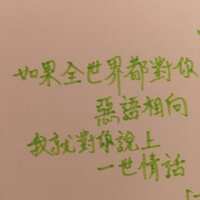 如果全世界都對你
惡語相向
我就對你說上
一世情話